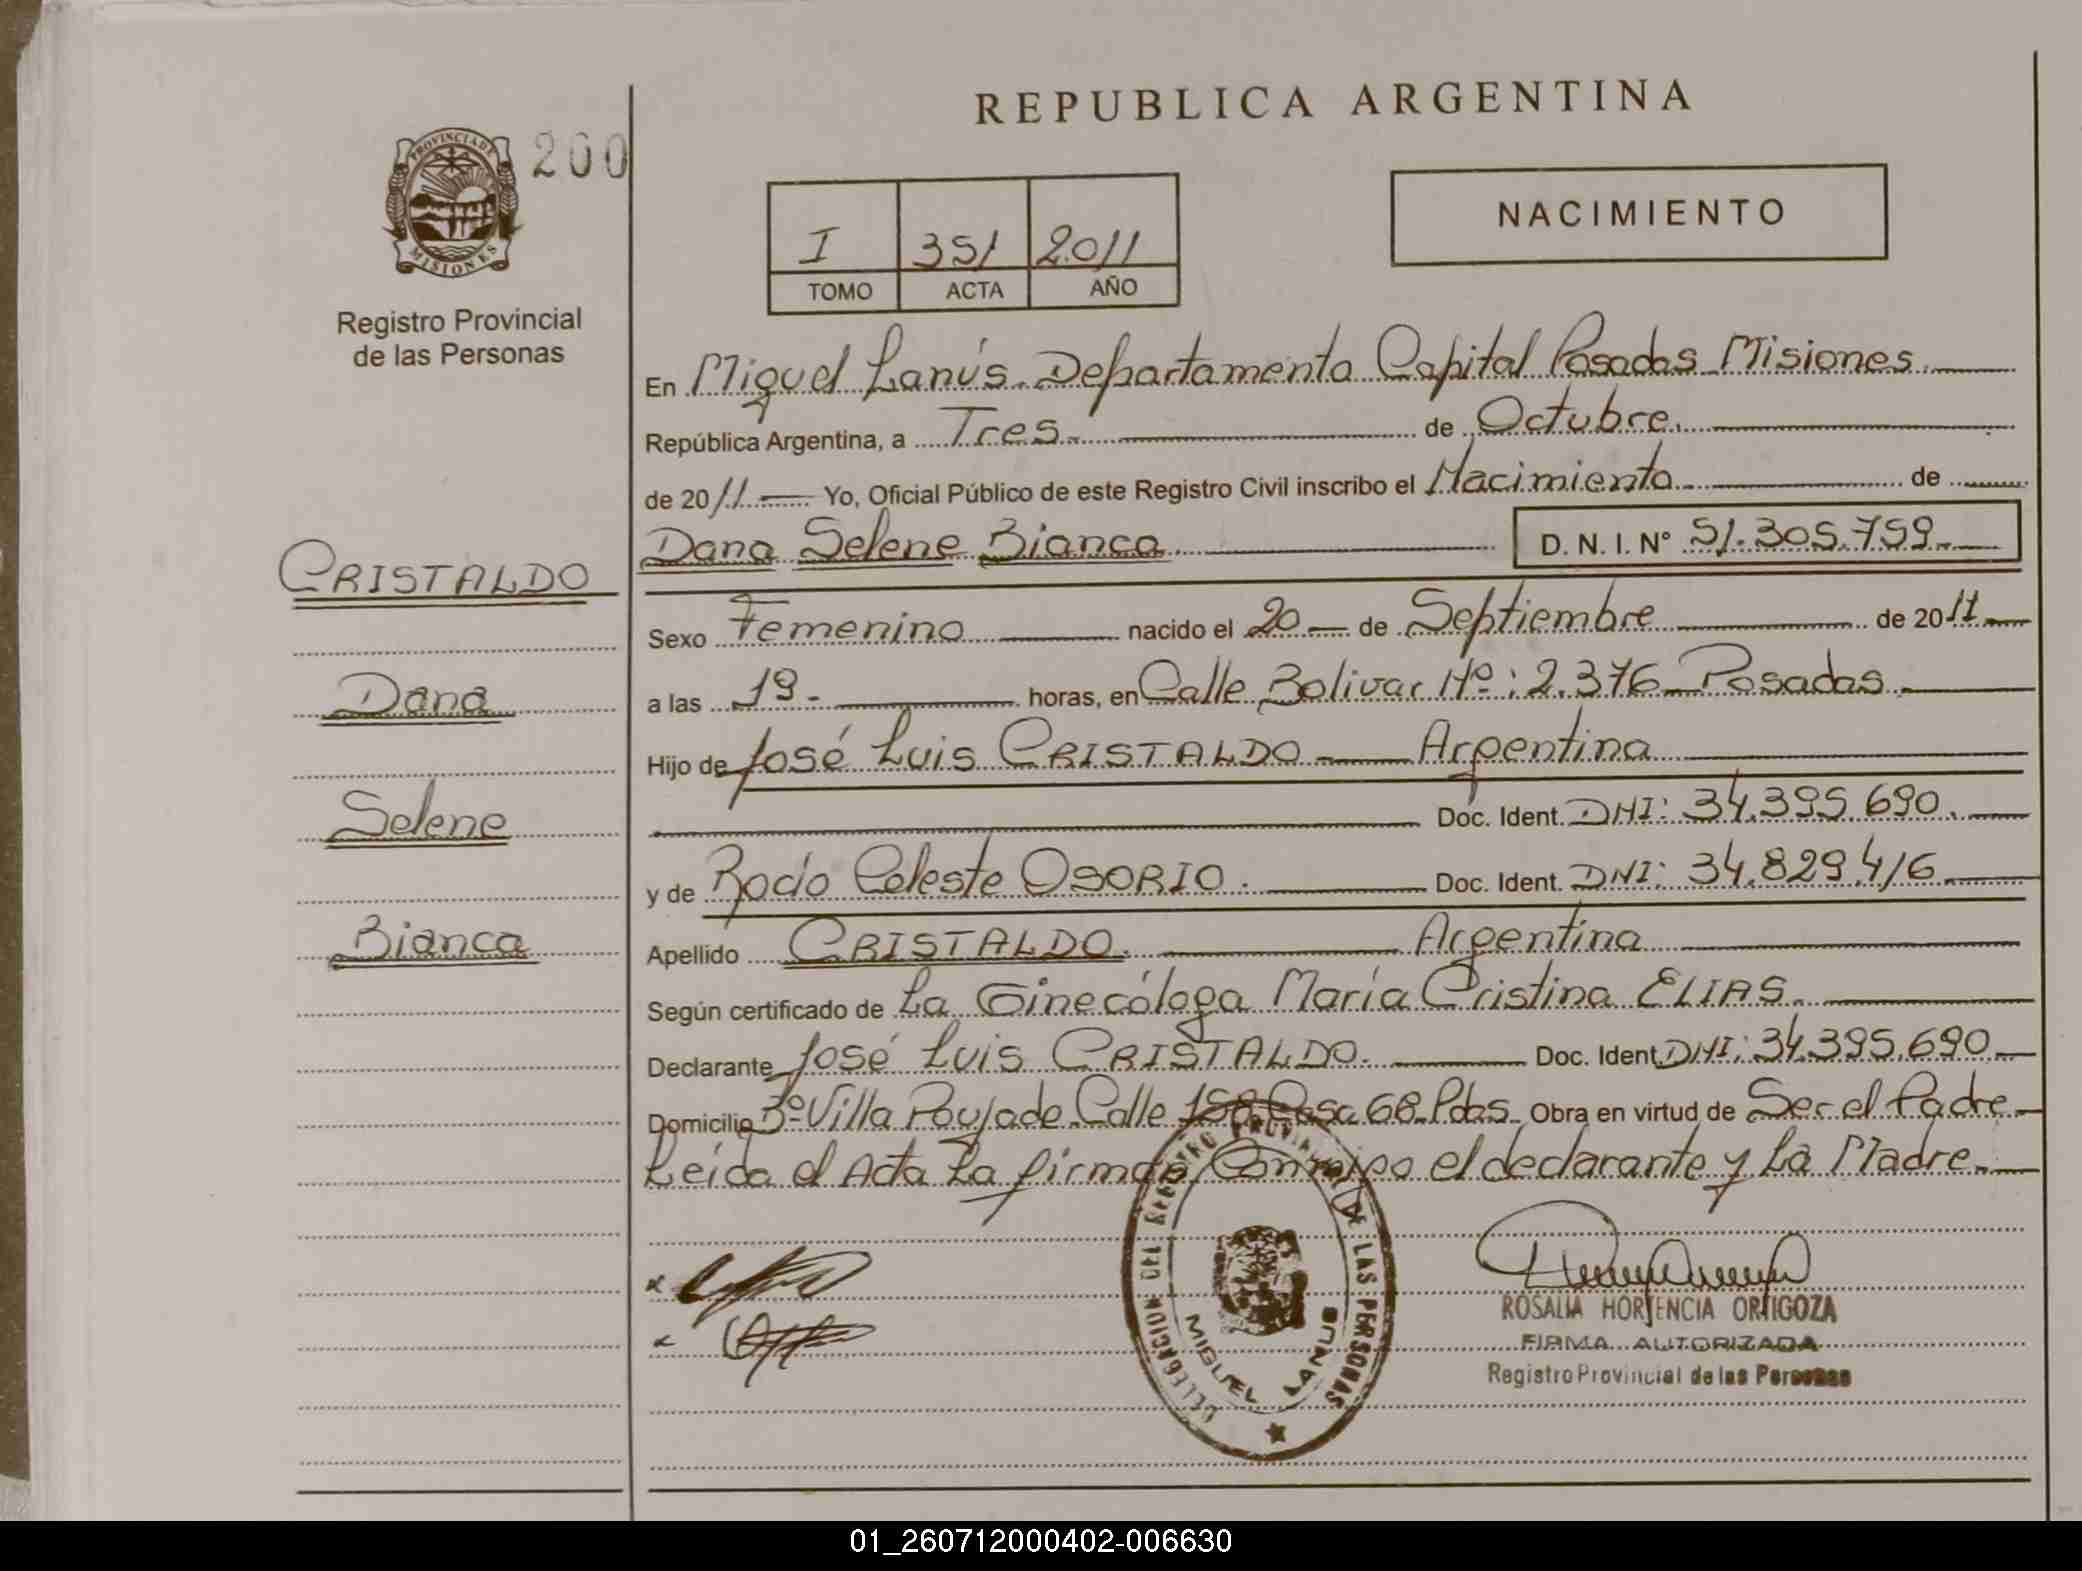 REPUBLICA ARGENTINA
PROVINCIA DE MISIONES
200
Registro Provincial
de las Personas
I 351 2.011
TOMO ACTA AÑO
NACIMIENTO
En Miguel Lanús. Departamento Capital Posadas Misiones.
República Argentina, a Tres. de Octubre.
de 2011. Yo, Oficial Público de este Registro Civil inscribo el Nacimiento de
Dana Selene Bianca D. N. I. N° 51.305.759.
CRISTALDO
Dana
Selene
Bianca
Sexo Femenino nacido el 20 de Septiembre de 2011
a las 19. horas, en Calle Bolivar Nº: 2.376 Posadas.
Hijo de José Luis CRISTALDO Argentina
Doc. Ident. DNI: 34.395.690.
y de Rocío Celeste OSORIO. Doc. Ident. DNI: 34.829.416
Apellido CRISTALDO. Argentina
Según certificado de La Ginecóloga María Cristina ELIAS.
Declarante José Luis CRISTALDO. Doc. Ident. DNI: 34.395.690
Domicilio Bº Villa Poujade Calle Casa 68 Pdas. Obra en virtud de Ser el Padre
Leida el Acta La firman Conmigo el declarante y La Madre.
DELEGACION DEL REGISTRO PROVINCIAL DE LAS PERSONAS
MIGUEL LANUS
ROSALIA HORTENCIA ORTIGOZA
FIRMA AUTORIZADA
Registro Provincial de las Personas
01_260712000402-006630